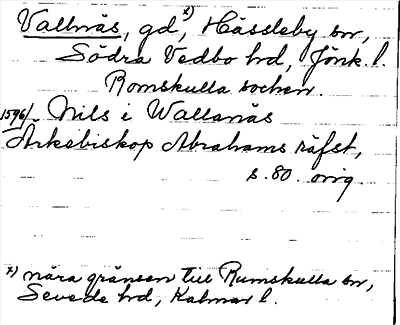 Vallnäs, gd x), Hässleby sn,
Södra Vedbo hd, Jönk. l.
Romskulla socken.
1596/ Nils i Wallanäs
Arkebiskop Abrahams räfst,
s. 80. orig.
x) nära gränsen till Rumskulla sn,
Sevede hd, Kalmar l.